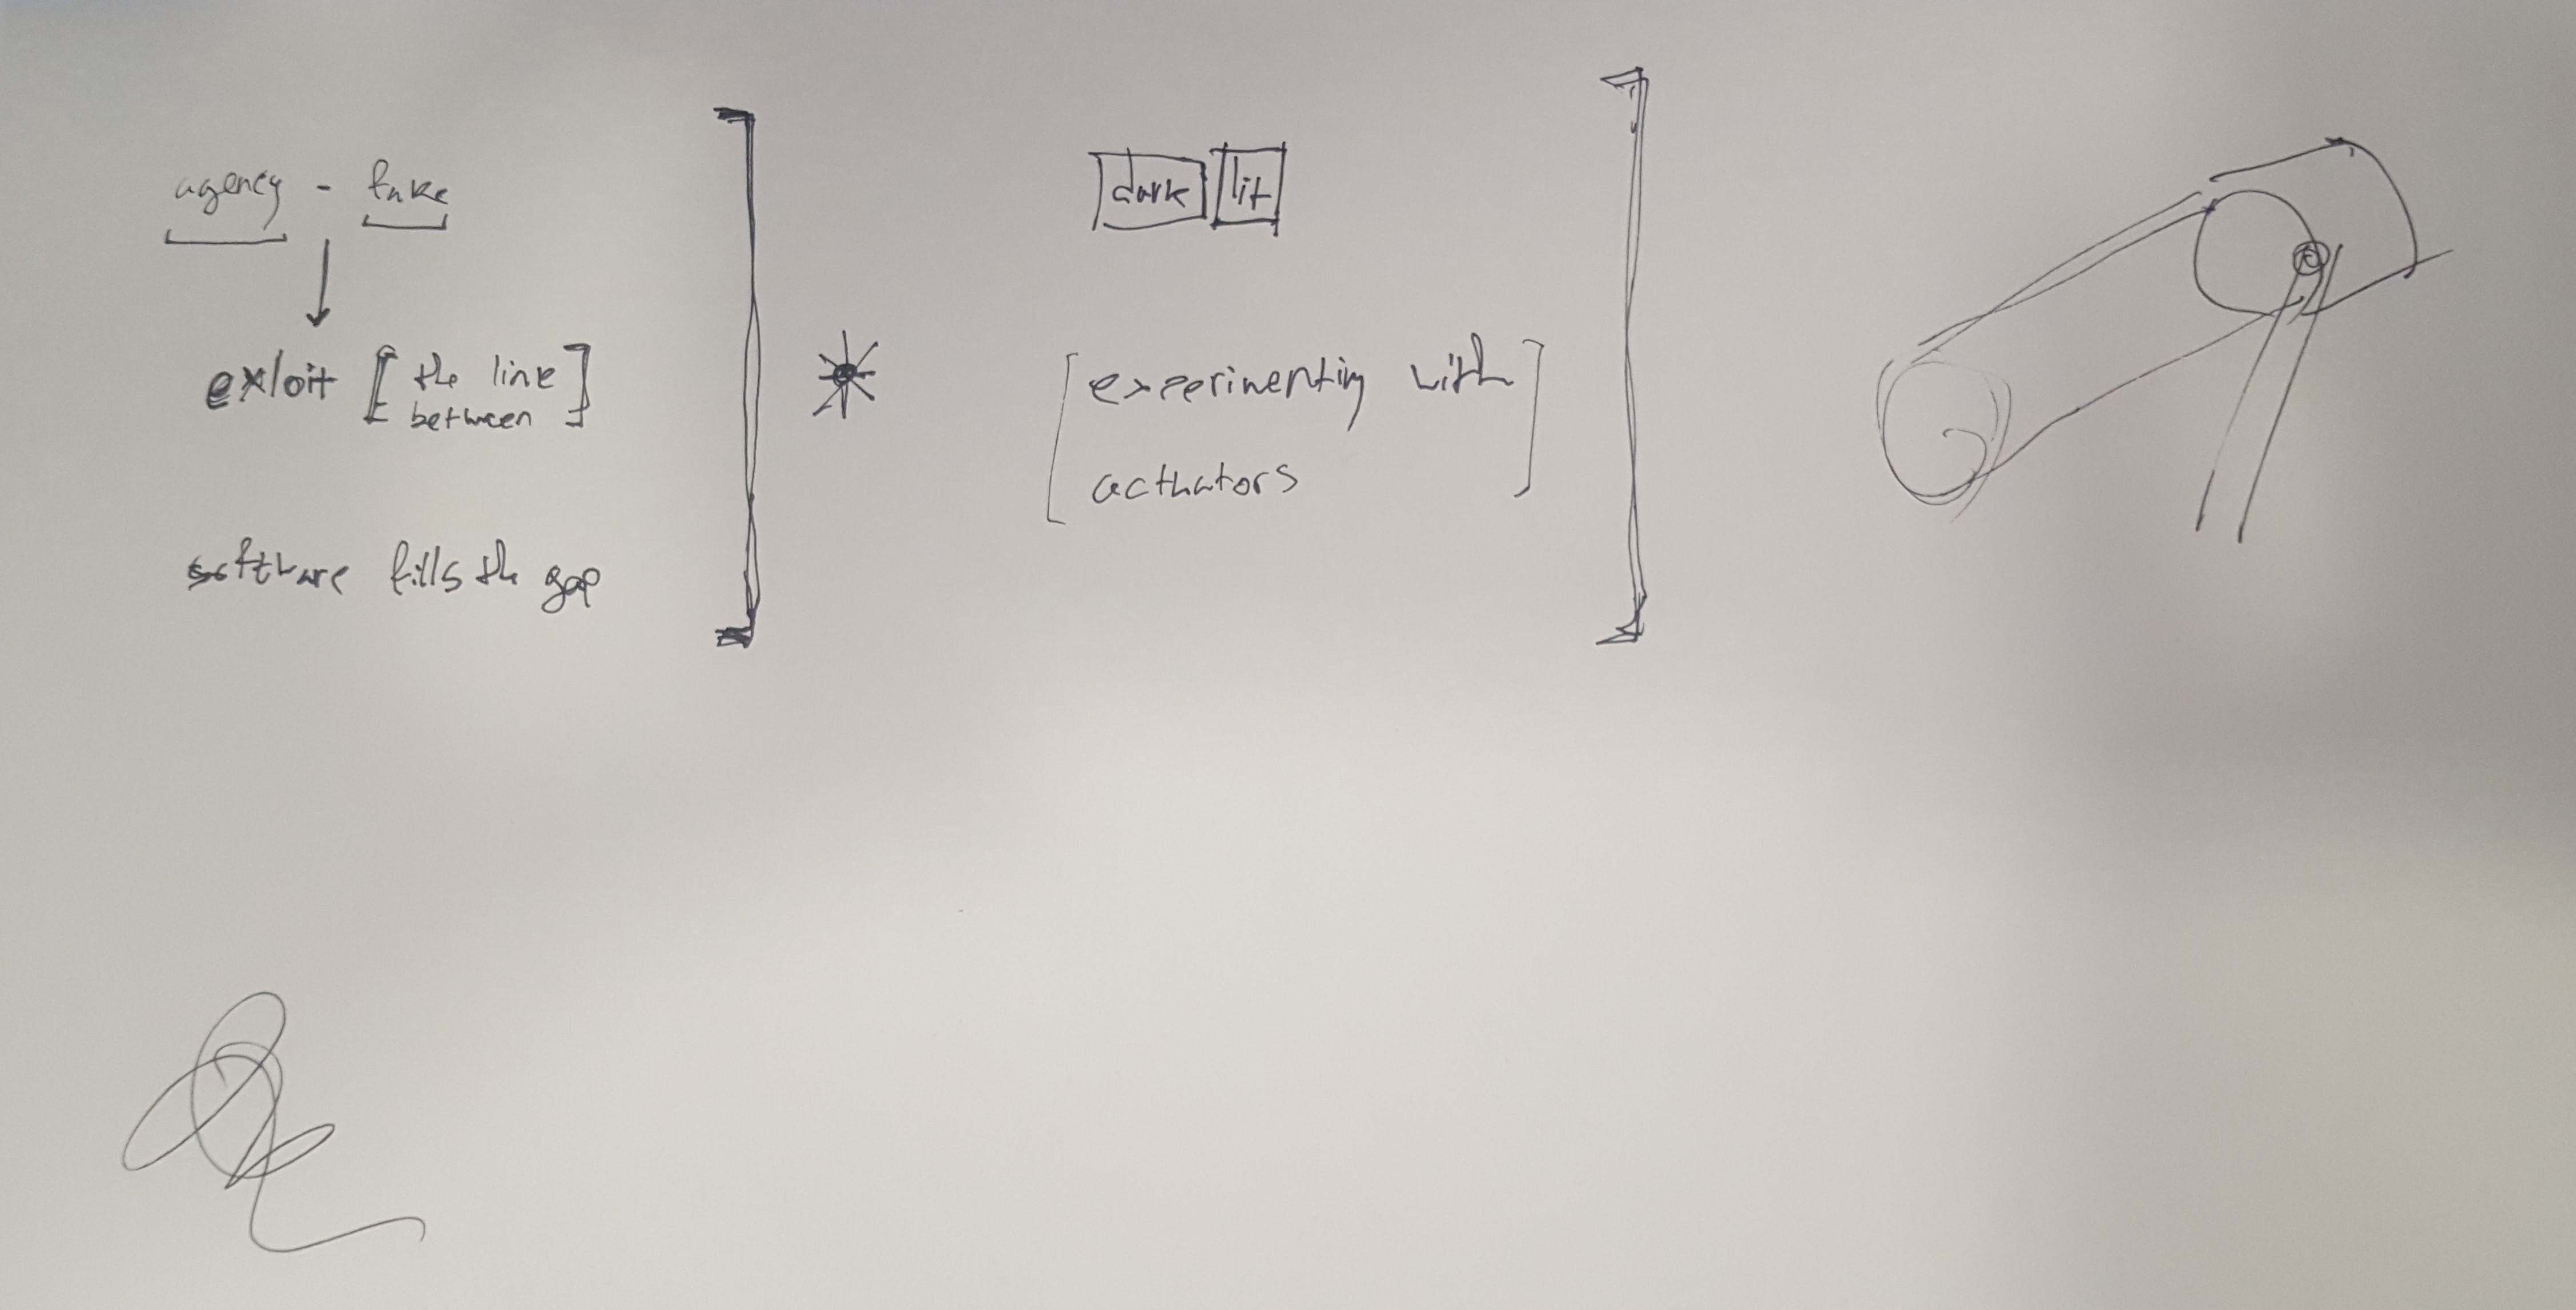 agency - fake
exloit [ the line
between ]
software fills the gap
dark lit
[ experimenting with
acthators ]